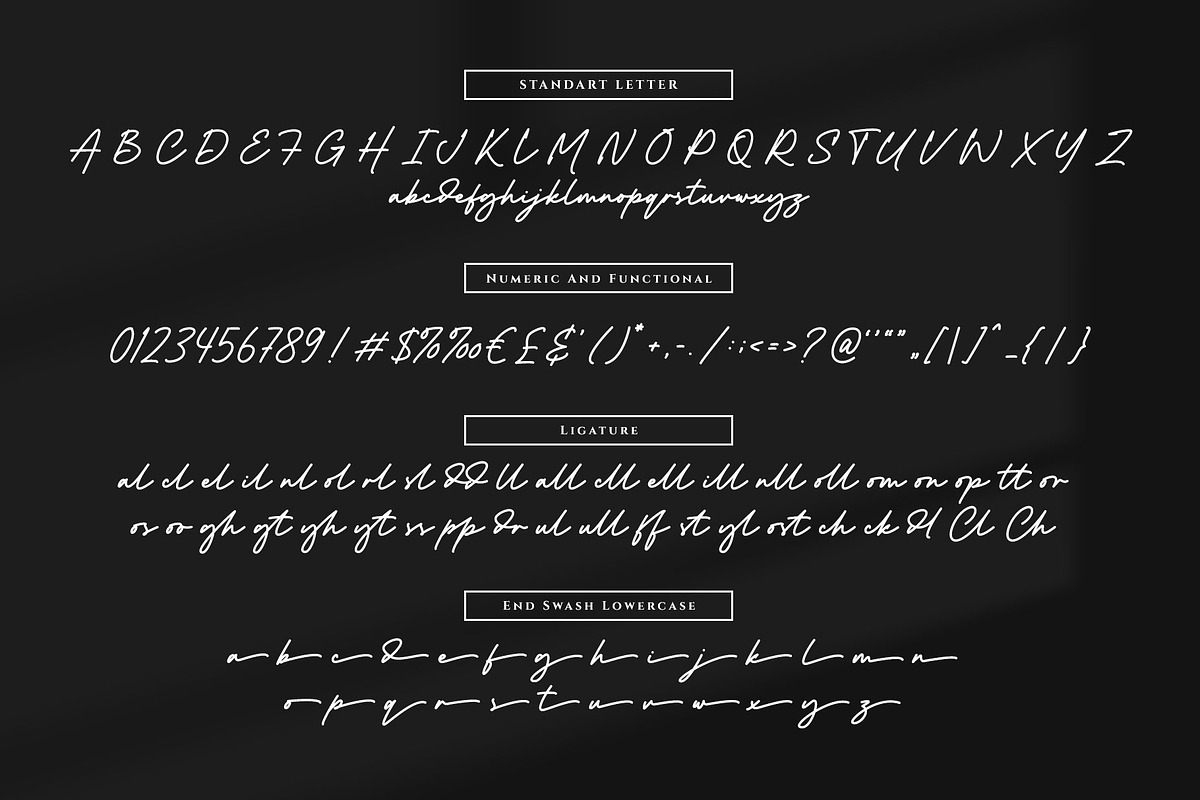 STANDART LETTER
A B C D E F G H I J K L M N O P Q R S T U V W X Y Z
abcdefghijklmnopqrstuvwxyz
NUMERIC AND FUNCTIONAL
0123456789! #$%‰€£&'()*+,-./:;<=>?@‘’“”„[|]^_{|}
LIGATURE
al cl el il nl ol rl sl dd ll all cll ell ill nll oll om on op tt or
os oo gh gt yh yt ss pp dr ul ull ff st yl ost ch ck dl Cl Ch
END SWASH LOWERCASE
a b c d e f g h i j k l m n
o p q r s t u v w x y z